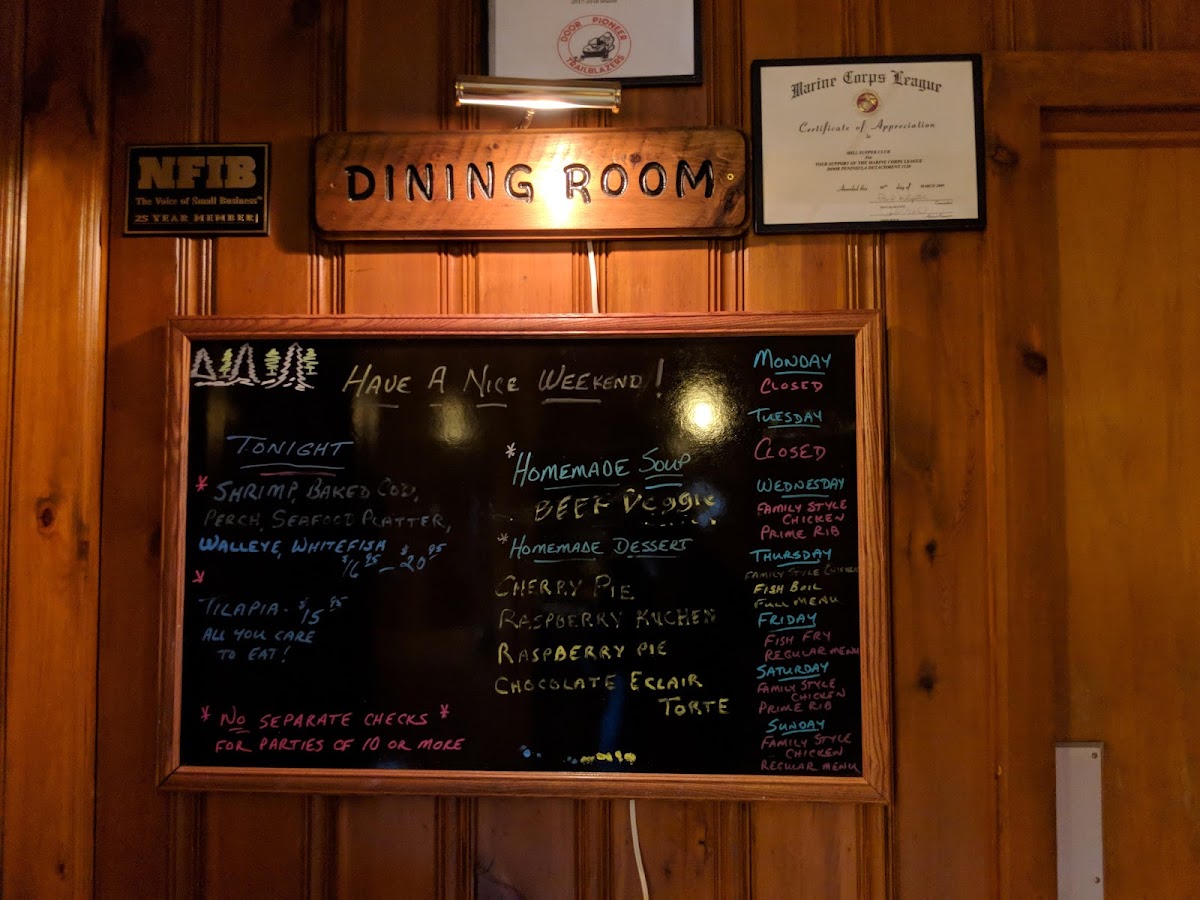 DOOR PIONEER
TRAILBLAZERS
NFIB
The Voice of Small Business
25 YEAR MEMBER
DINING ROOM
Marine Corps League
Certificate of Appreciation
to
MILL SUPPER CLUB
For
YOUR SUPPORT OF THE MARINE CORPS LEAGUE
DOOR PENINSULA DETACHMENT 1130
Awarded this day of MARCH 2009
HAVE A NICE WEEKEND!
TONIGHT
* SHRIMP, BAKED COD,
PERCH, SEAFOOD PLATTER,
WALLEYE, WHITEFISH
$16.95 - $20.95
*
TILAPIA - $15.95
ALL YOU CARE
TO EAT!
* NO SEPARATE CHECKS *
FOR PARTIES OF 10 OR MORE
* HOMEMADE SOUP
BEEF Veggie
* HOMEMADE DESSERT
CHERRY PIE
RASPBERRY KUCHEN
RASPBERRY PIE
CHOCOLATE ECLAIR
TORTE
MONDAY
CLOSED
TUESDAY
CLOSED
WEDNESDAY
FAMILY STYLE
CHICKEN
PRIME RIB
THURSDAY
FAMILY STYLE CHICKEN
FISH BOIL
FULL MENU
FRIDAY
FISH FRY
REGULAR MENU
SATURDAY
FAMILY STYLE
CHICKEN
PRIME RIB
SUNDAY
FAMILY STYLE
CHICKEN
REGULAR MENU